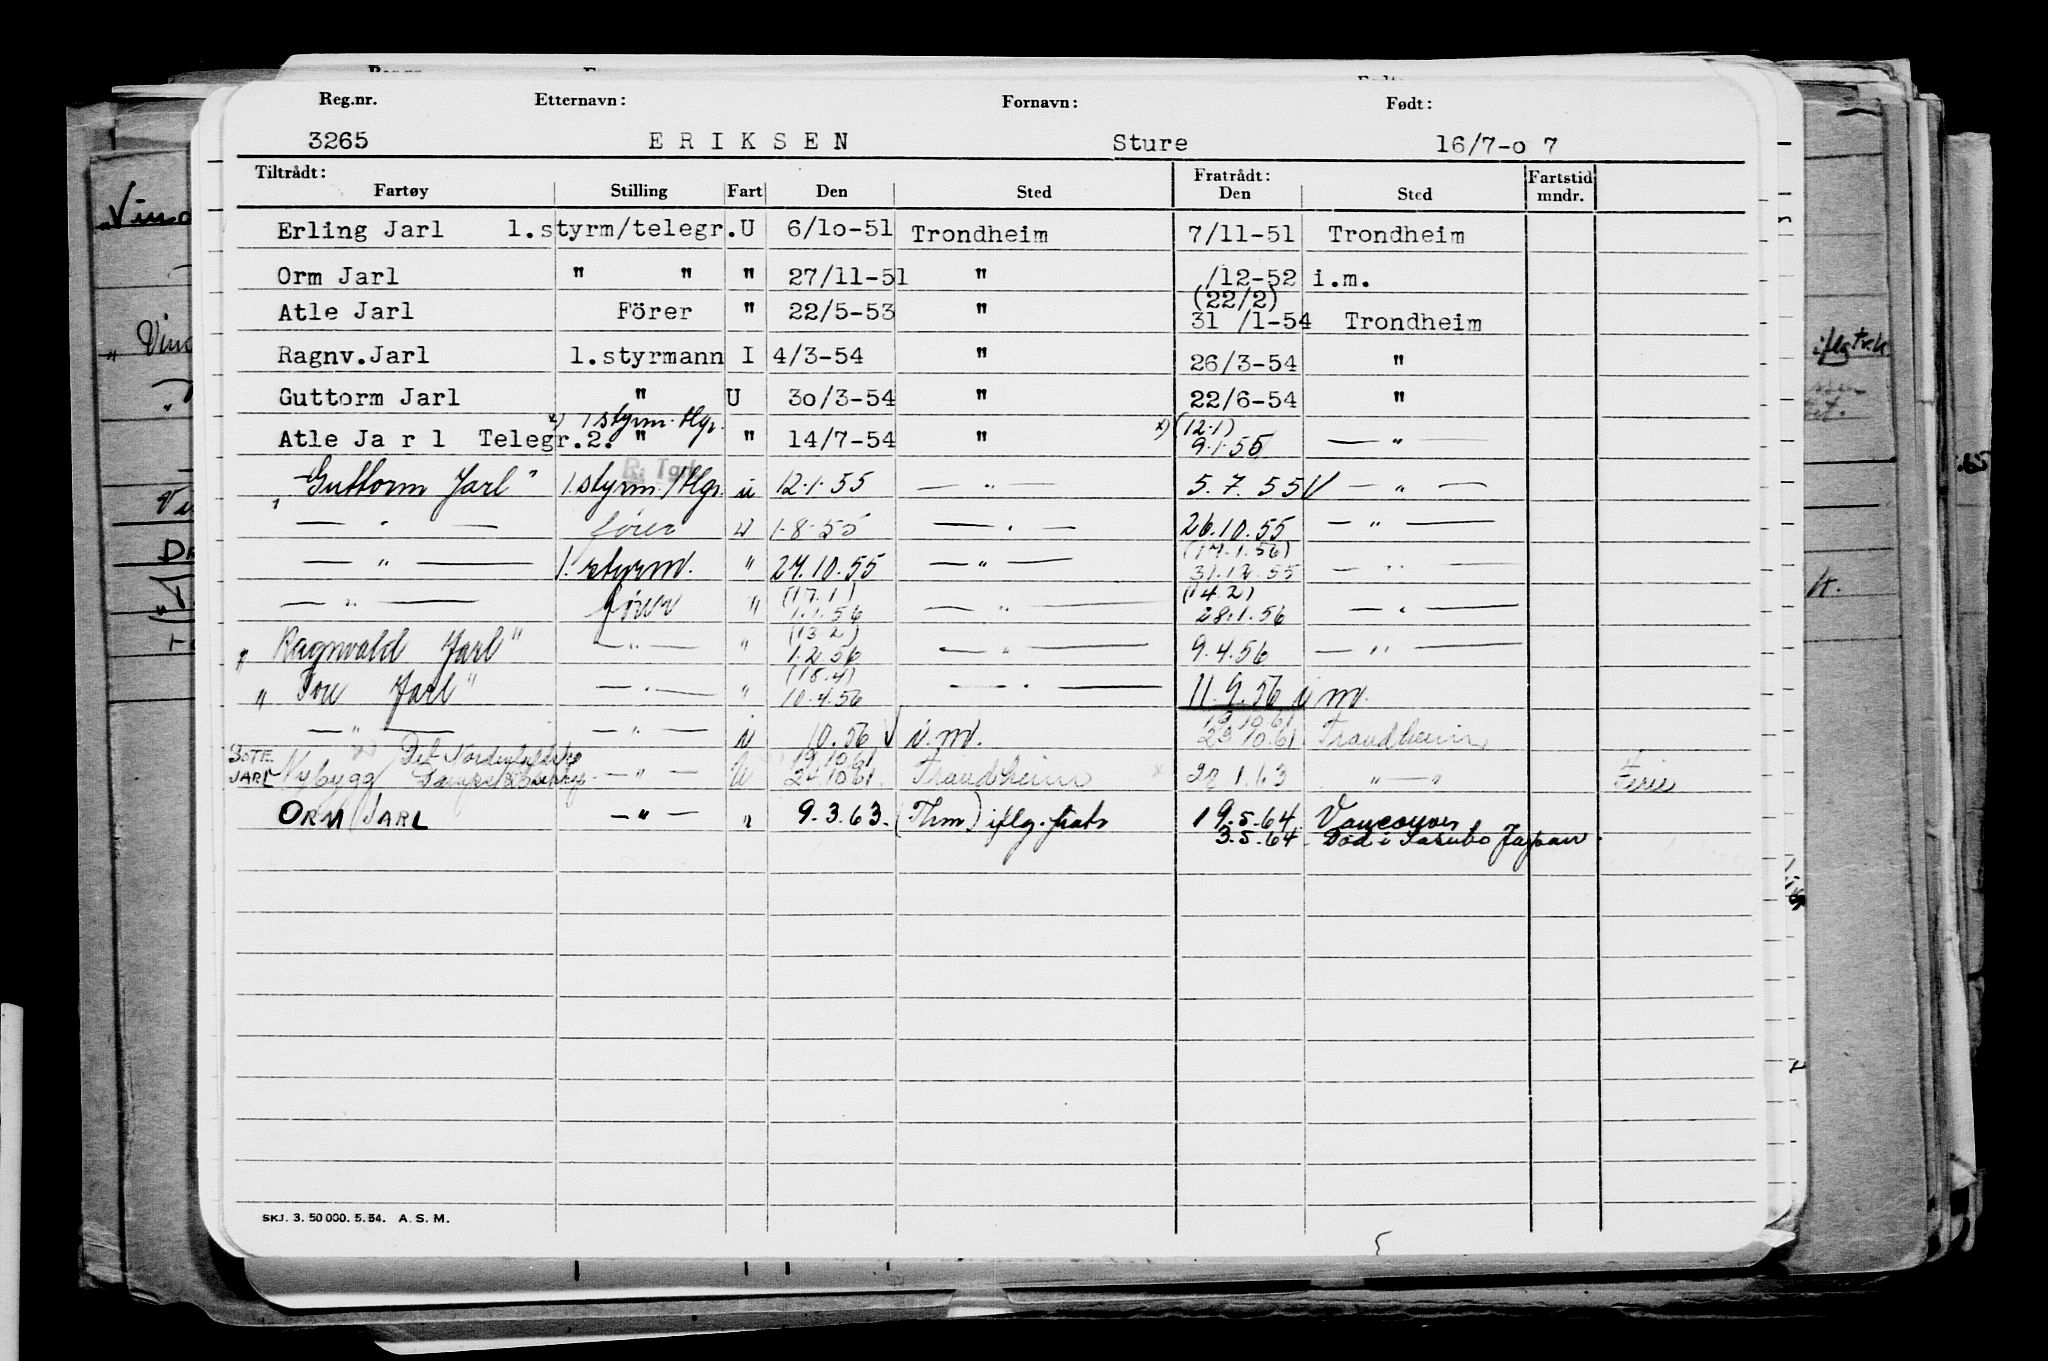 Reg.nr. Etternavn: Fornavn: Født:
3265 ERIKSEN Sture 16/7-o 7
Tiltrådt: Fratrådt: Fartstid
Fartøy Stilling Fart Den Sted Den Sted mndr.
Erling Jarl 1.styrm/telegr. U 6/1o-51 Trondheim 7/11-51 Trondheim
Orm Jarl " " " 27/11-51 " /12-52 i.m.
(22/2)
Atle Jarl Förer " 22/5-53 " 31 /1-54 Trondheim
Ragnv.Jarl 1.styrmann I 4/3-54 " 26/3-54 "
Guttorm Jarl " U 3o/3-54 " 22/6-54 "
x) 1 styrm. tlgr. x) (12.1)
Atle Ja r l Telegr.2. " " 14/7-54 " 9.1.55 — " —
"Guttorm Jarl" 1.styrm./tlgr. u 12.1.55 — " — 5.7.55 — " —
— " — fører u 1.8.55 — " — 26.10.55 — " —
(17.1.56)
— " — 1. styrm. " 27.10.55 — " — 31.12.55 — " —
(17.1) (14.2)
— " — fører " 1.1.56 — " — 28.1.56 — " —
(13.2)
"Ragnvald Jarl" — " — " 1.2.56 — " — 9.4.56 — " —
(18.4)
" Jarl" — " — " 10.4.56 — " — 11.9.56 i m.
19.10.61
— " — — " — i 10.56 i.m. 23.10.61 Trondheim
BOTE JARL Nybygg Det Nordenfjeldske 19.10.61
— " — U 24.10.61 Trondheim 1.63 " — " Ferie
ORM JARL — " — " 9.3.63. (Thm) iflg. 19.5.64 Vancouver
3.5.64 Død i Sasebo Japan.
SKJ. 3. 50 000. 5. 54. A. S. M.